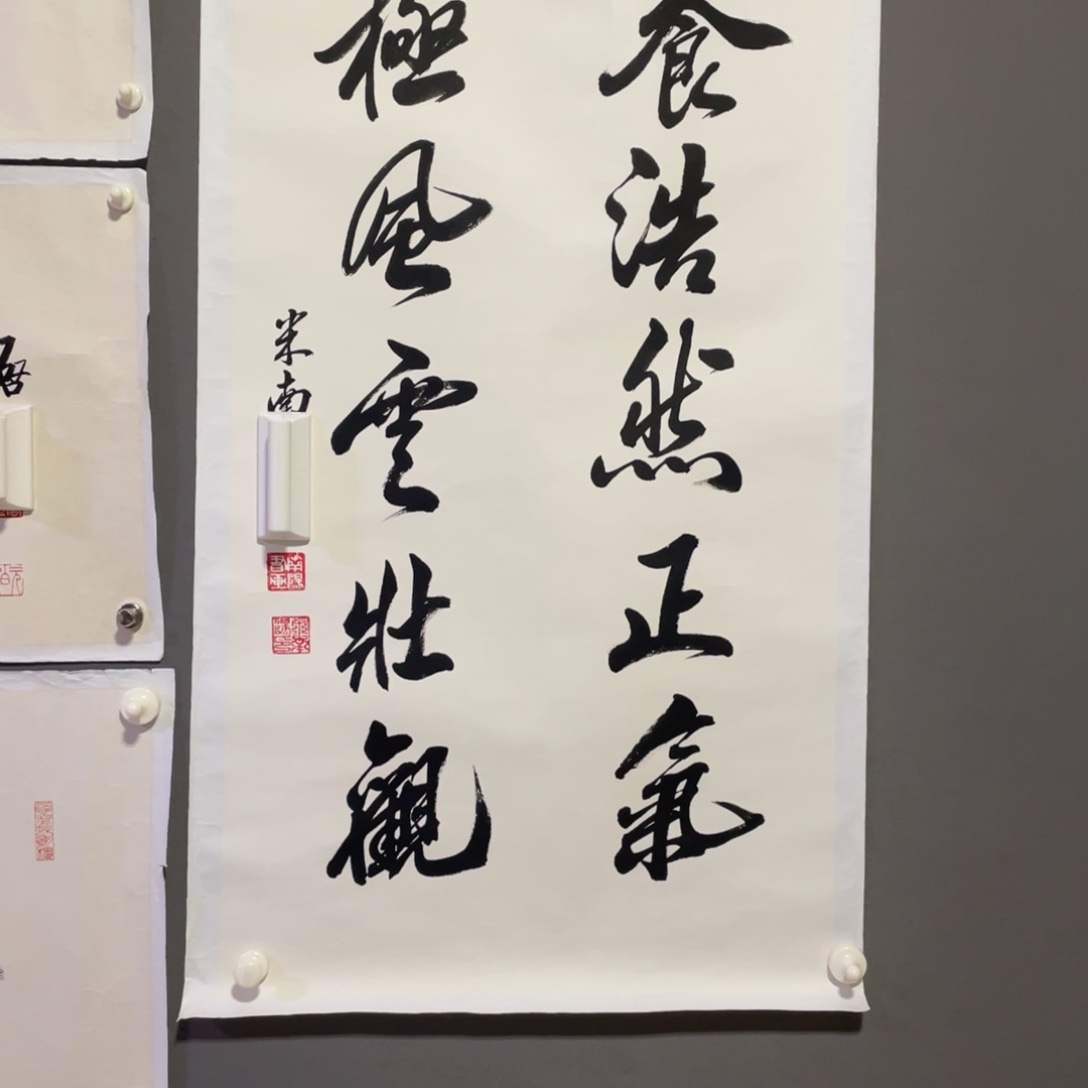 食浩然正氣
極風雲壯觀
米南
啓